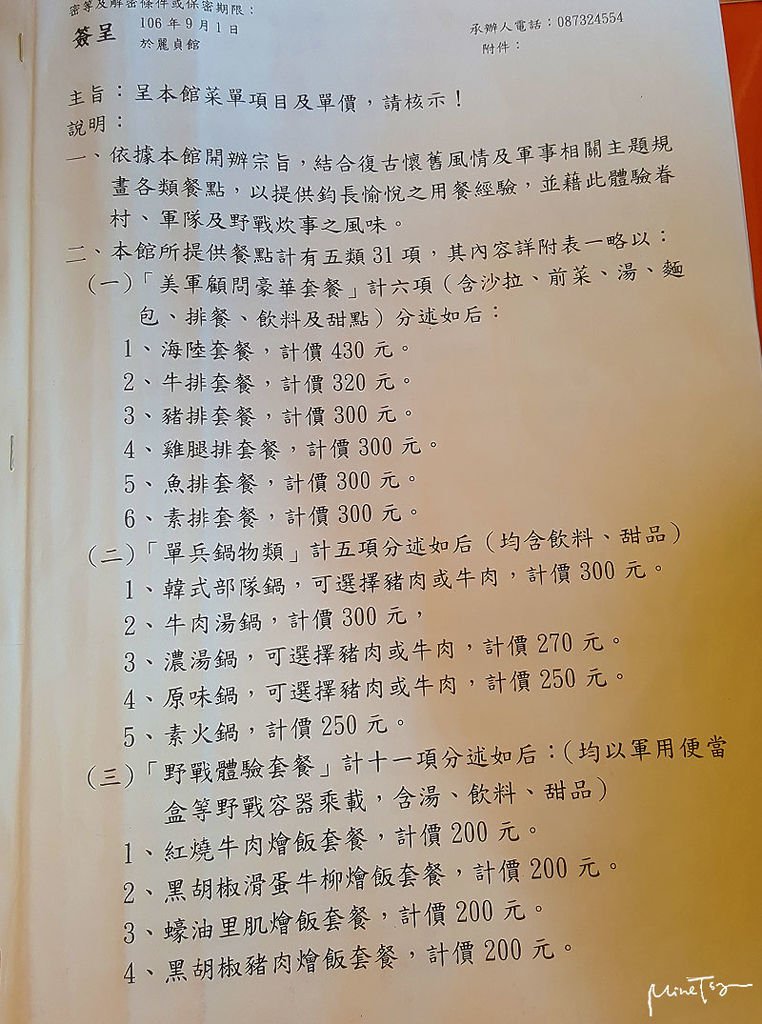 密等及解密條件或保密期限：
簽呈 106 年 9 月 1 日
於麗貞館
承辦人電話：087324554
附件：
主旨：呈本館菜單項目及單價，請核示！
說明：
一、依據本館開辦宗旨，結合復古懷舊風情及軍事相關主題規
畫各類餐點，以提供鈞長愉悅之用餐經驗，並藉此體驗眷
村、軍隊及野戰炊事之風味。
二、本館所提供餐點計有五類 31 項，其內容詳附表一略以：
(一)「美軍顧問豪華套餐」計六項（含沙拉、前菜、湯、麵
包、排餐、飲料及甜點）分述如后：
1、海陸套餐，計價 430 元。
2、牛排套餐，計價 320 元。
3、豬排套餐，計價 300 元。
4、雞腿排套餐，計價 300 元。
5、魚排套餐，計價 300 元。
6、素排套餐，計價 300 元。
(二)「單兵鍋物類」計五項分述如后（均含飲料、甜品）
1、韓式部隊鍋，可選擇豬肉或牛肉，計價 300 元。
2、牛肉湯鍋，計價 300 元，
3、濃湯鍋，可選擇豬肉或牛肉，計價 270 元。
4、原味鍋，可選擇豬肉或牛肉，計價 250 元。
5、素火鍋，計價 250 元。
(三)「野戰體驗套餐」計十一項分述如后：（均以軍用便當
盒等野戰容器乘載，含湯、飲料、甜品）
1、紅燒牛肉燴飯套餐，計價 200 元。
2、黑胡椒滑蛋牛柳燴飯套餐，計價 200 元。
3、蠔油里肌燴飯套餐，計價 200 元。
4、黑胡椒豬肉燴飯套餐，計價 200 元。